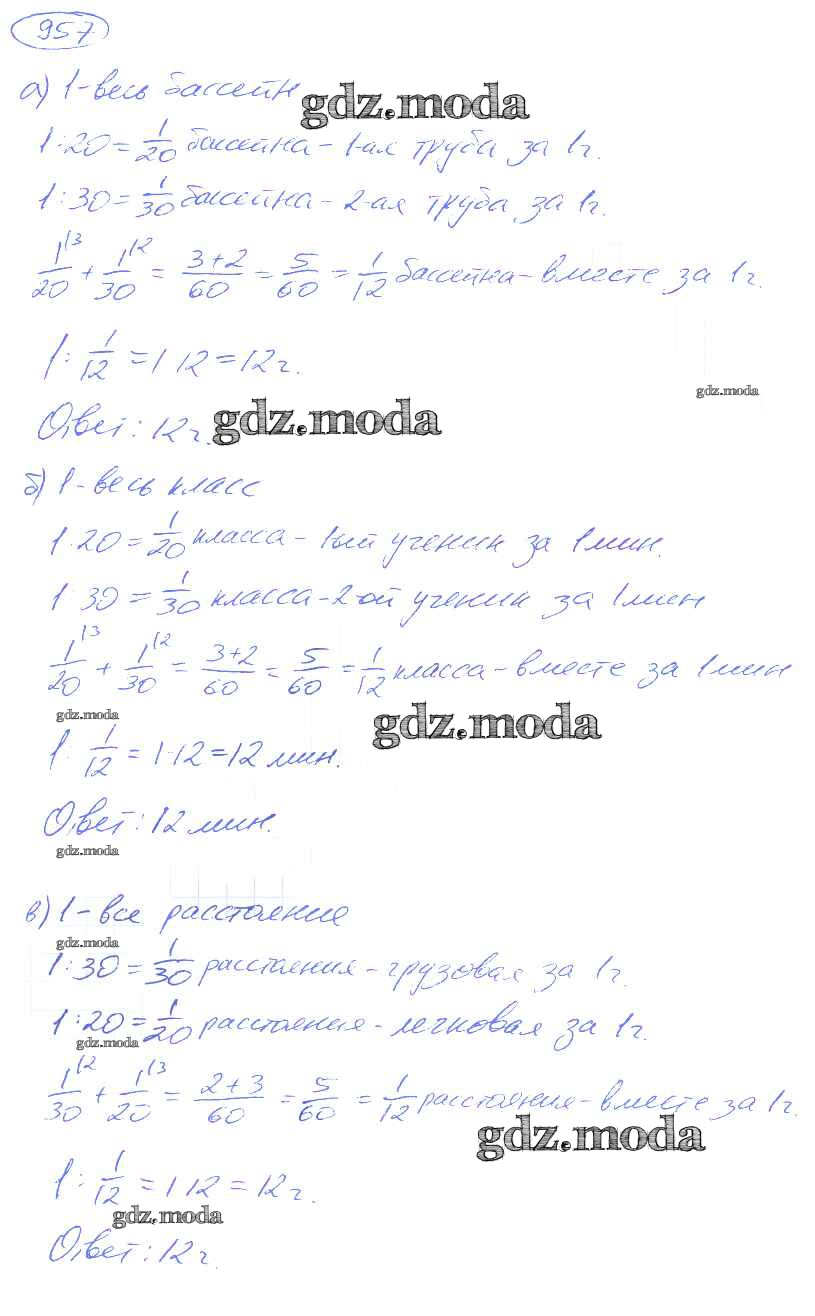 957
а) 1-весь бассейн gdz.moda
1:20=1/20 бассейна - 1-ая труба за 1ч.
1:30=1/30 бассейна - 2-ая труба за 1ч.
1/20 |3 + 1/30 |2 = 3+2/60 = 5/60 = 1/12 бассейна - вместе за 1ч.
1 : 1/12 = 1·12 = 12ч.
gdz.moda
Ответ: 12ч. gdz.moda
б) 1-весь класс
1:20 = 1/20 класса - 1ый ученик за 1мин.
1:30 = 1/30 класса - 2-ой ученик за 1мин
1/20 |3 + 1/30 |2 = 3+2/60 = 5/60 = 1/12 класса - вместе за 1мин
gdz.moda gdz.moda
1 : 1/12 = 1·12 = 12 мин.
Ответ: 12 мин.
gdz.moda
в) 1 - все расстояние
gdz.moda
1:30 = 1/30 расстояния - грузовая за 1ч.
1:20 = 1/20 расстояния - легковая за 1ч.
gdz.moda
1/30 |2 + 1/20 |3 = 2+3/60 = 5/60 = 1/12 расстояния - вместе за 1ч.
gdz.moda
1 : 1/12 = 1·12 = 12ч.
gdz.moda
Ответ: 12ч.